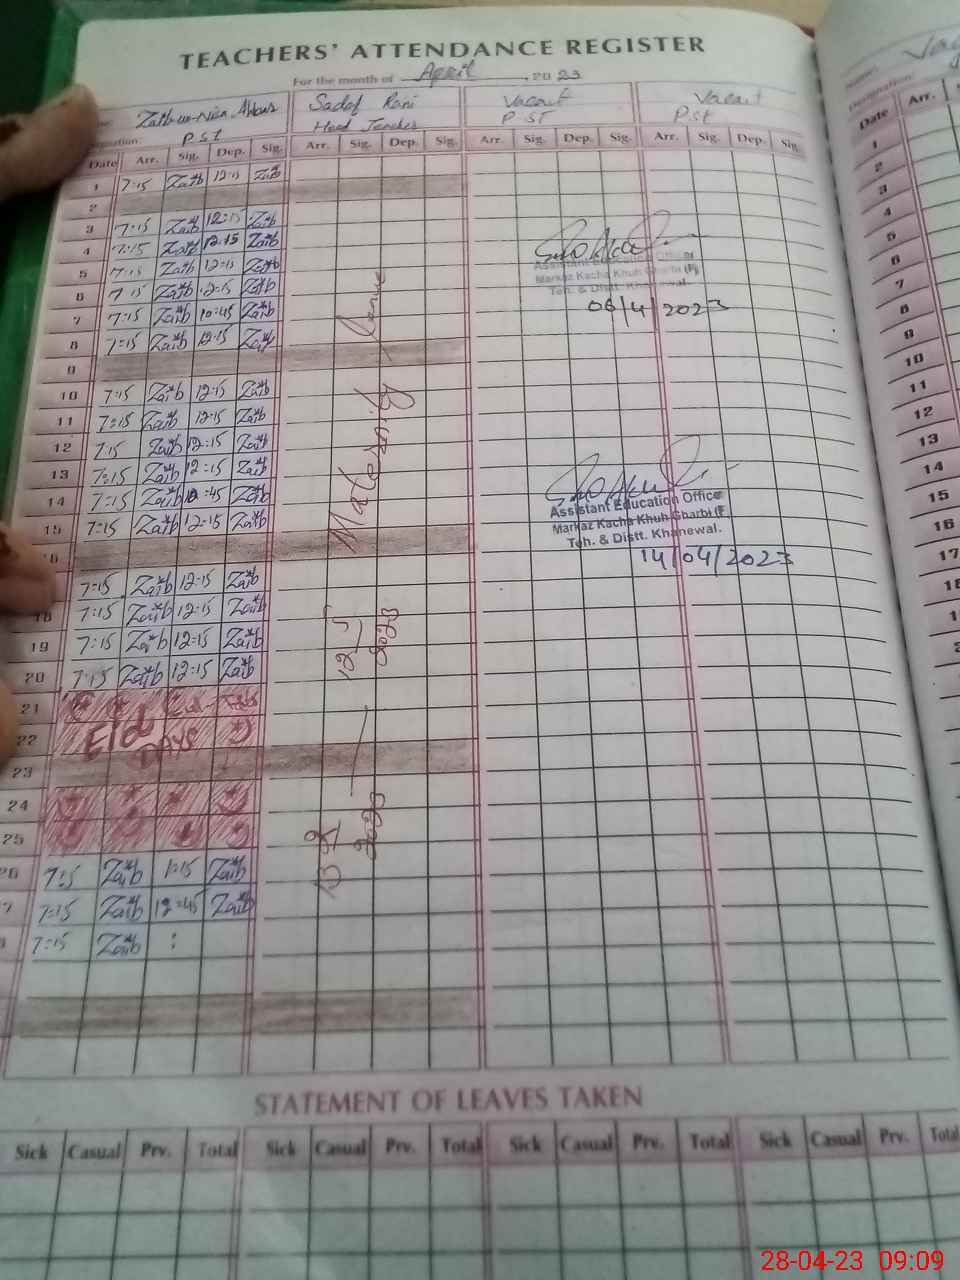 TEACHERS' ATTENDANCE REGISTER
For the month of April, 2023
Zaib-un-Nisa Abbas Sadaf Rani Vacant Vacant
P.S.T Head Teacher P.ST P.ST
Date Arr. Sig. Dep. Sig. Arr. Sig. Dep. Sig. Arr. Sig. Dep. Sig. Arr. Sig. Dep. Sig.
1 7:15 Zaib 12:15 Zaib
2
3 7:15 Zaib 12:15 Zaib
4 7:15 Zaib 12:15 Zaib
5 7:15 Zaib 12:15 Zaib
6 7:15 Zaib 12:15 Zaib
7 7:15 Zaib 10:45 Zaib
8 7:15 Zaib 12:15 Zaib
9
10 7:15 Zaib 12:15 Zaib
11 7:15 Zaib 12:15 Zaib
12 7:15 Zaib 12:15 Zaib
13 7:15 Zaib 12:15 Zaib
14 7:15 Zaib :45 Zaib
15 7:15 Zaib 12:15 Zaib
16
7:15 Zaib 12:15 Zaib
18 7:15 Zaib 12:15 Zaib
19 7:15 Zaib 12:15 Zaib
20 7:15 Zaib 12:15 Zaib
21
22 Eid DAYS
23
24
25
26 7:15 Zaib 1:15 Zaib
7 7:15 Zaib 12:45 Zaib
7:15 Zaib :
Maternity Leave
13 2 2023 — 12 5 2023
Assistant Education Officer
Markaz Kacha Khuh Gharbi (F)
Teh. & Distt. Khanewal.
06/4/2023
Assistant Education Officer
Markaz Kacha Khuh Gharbi (F)
Teh. & Distt. Khanewal.
14/04/2023
STATEMENT OF LEAVES TAKEN
Sick Casual Prv. Total Sick Casual Prv. Total Sick Casual Prv. Total Sick Casual Prv. Total
Designation:
Date Arr.
1
2
3
4
5
6
7
8
9
10
11
12
13
14
15
16
17
18
28-04-23 09:09